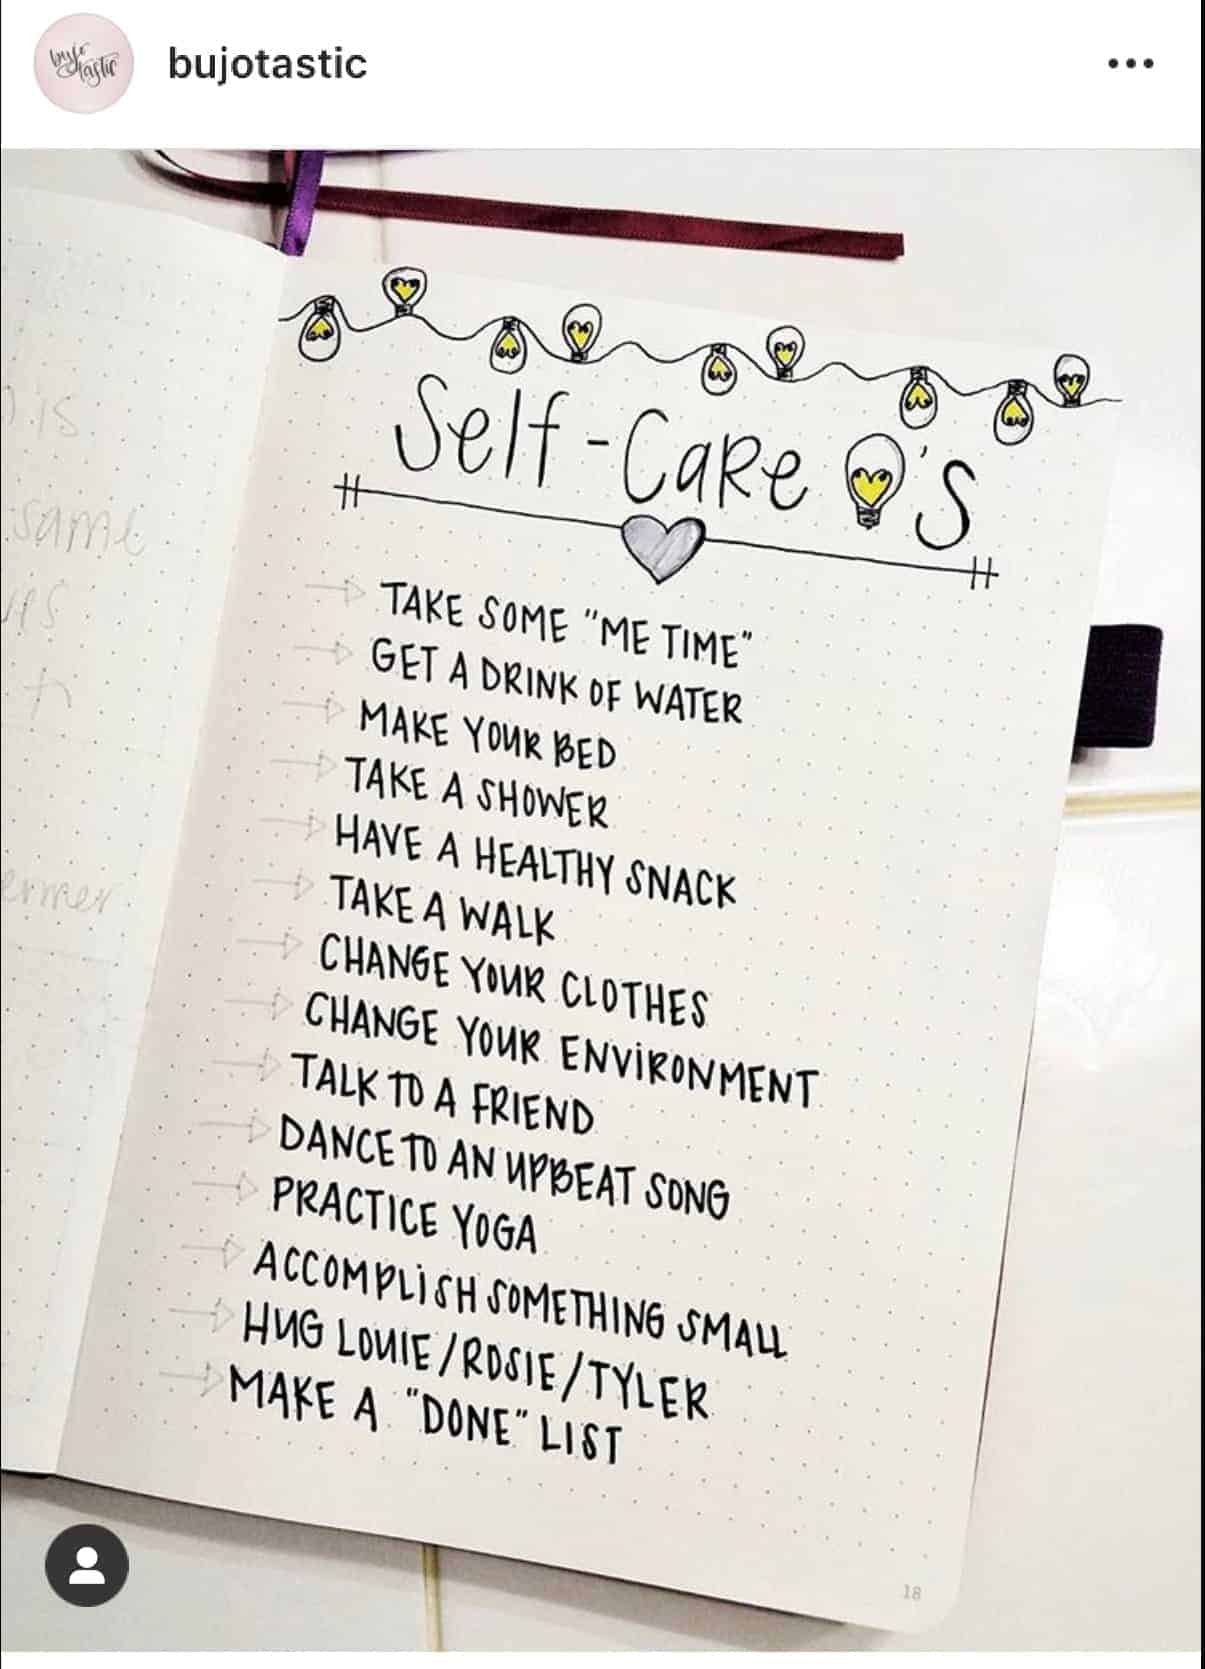 bujo
tastic
bujotastic
Self-Care 's
TAKE SOME "ME TIME"
GET A DRINK OF WATER
MAKE YOUR BED
TAKE A SHOWER
HAVE A HEALTHY SNACK
TAKE A WALK
CHANGE YOUR CLOTHES
CHANGE YOUR ENVIRONMENT
TALK TO A FRIEND
DANCE TO AN UPBEAT SONG
PRACTICE YOGA
ACCOMPLISH SOMETHING SMALL
HUG LOUIE/ROSIE/TYLER
MAKE A "DONE" LIST
18
same